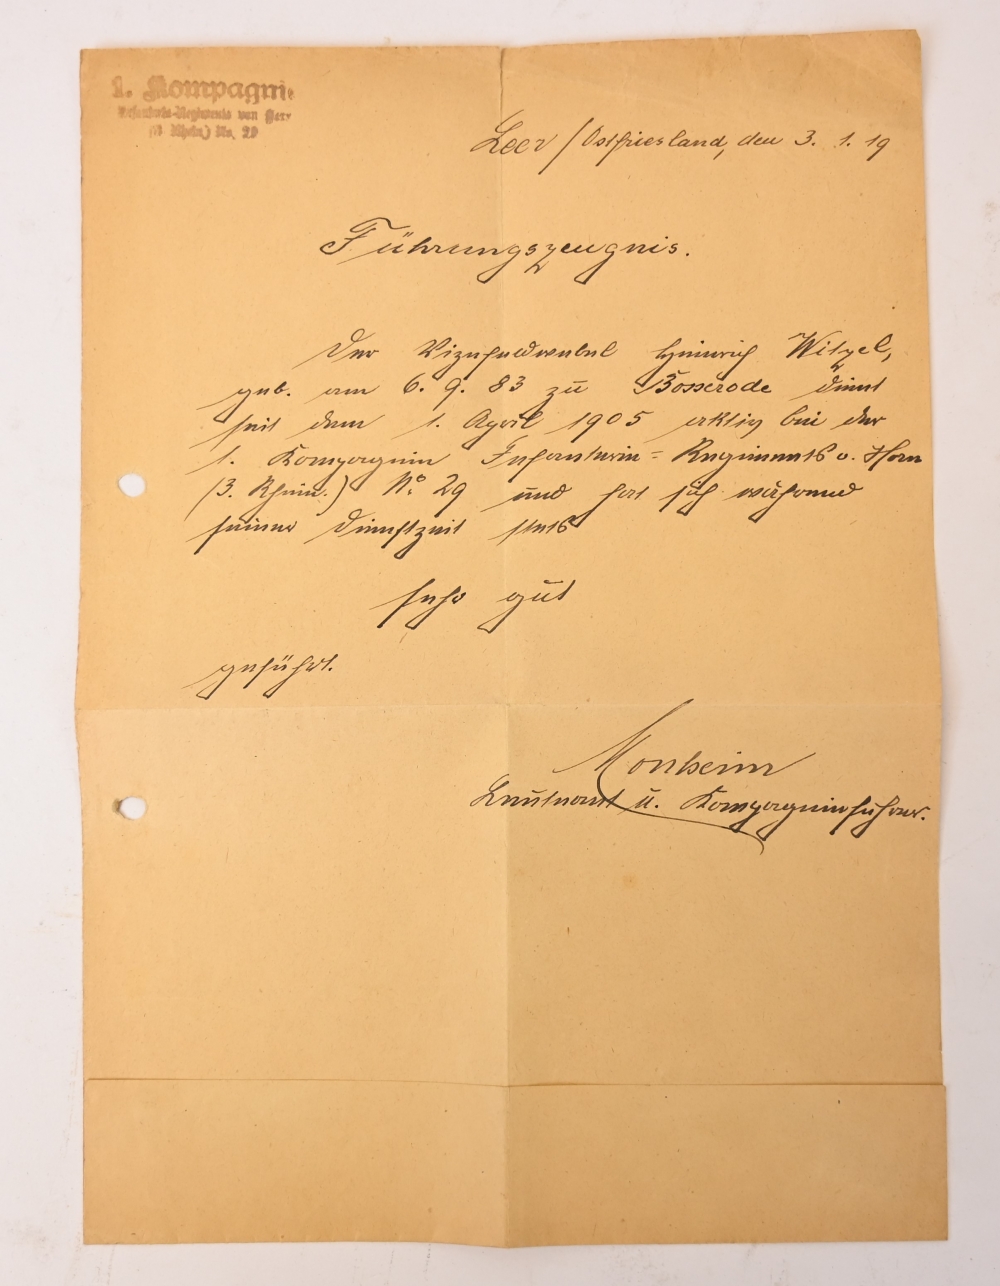 1. Kompagnie
Infanterie-Regiments von Horn
(3. Rhein.) No. 29
Leer / Ostfriesland, den 3. 1. 19
Führungszeugnis.
Der Vizefeldwebel Heinrich Witzel,
geb. am 6. 9. 83 zu Bosserode dient
seit dem 1. April 1905 aktiv bei der
1. Kompagnie Infanterie-Regiments v. Horn
(3. Rhein.) No. 29 und hat sich während
seiner Dienstzeit stets
sehr gut
geführt.
Monheim
Leutnant u. Kompagnieführer.